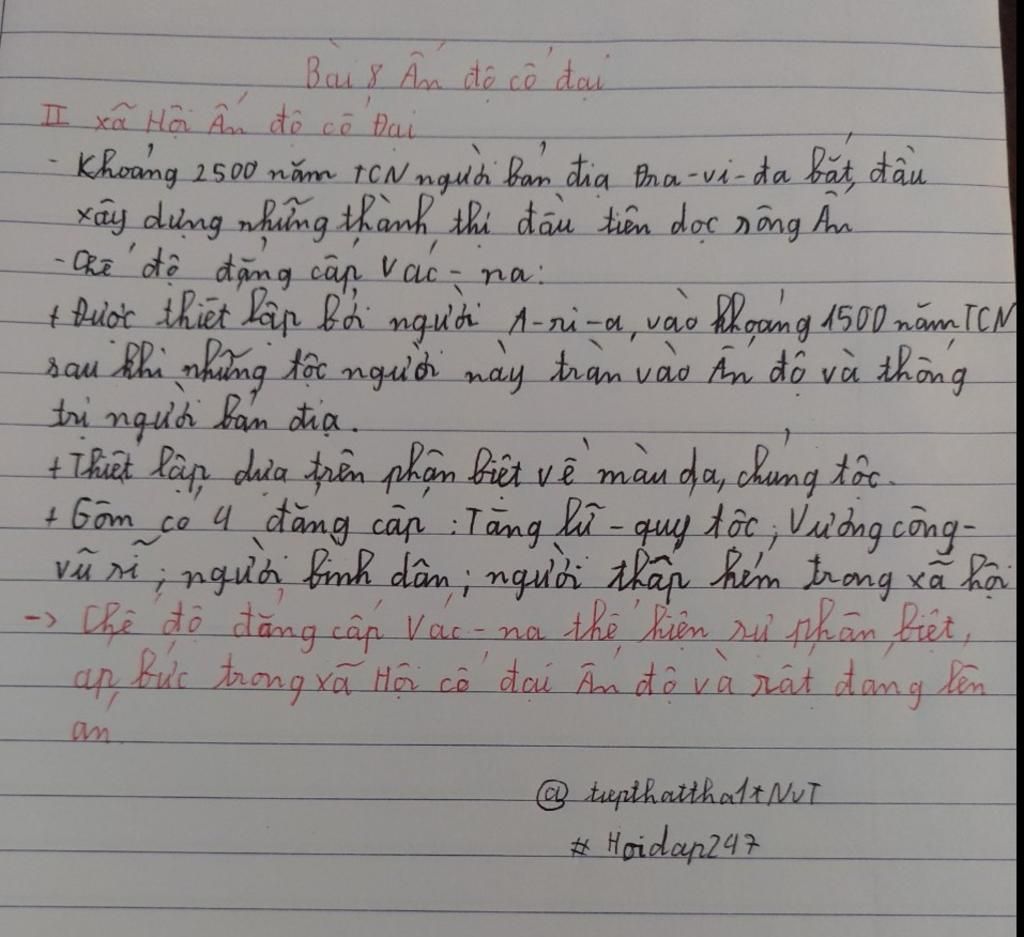 Bài 8 Ấn độ cổ đại
II xã Hội Ấn độ cổ Đại
- Khoảng 2500 năm TCN người bản địa Đra-vi-đa bắt đầu
xây dựng những thành thị đầu tiên dọc sông Ấn
- Chế độ đẳng cấp Vác-na:
+ Được thiết lập bởi người A-ri-a, vào khoảng 1500 năm TCN
sau khi những tộc người này tràn vào Ấn độ và thống
trị người bản địa.
+ Thiết lập dựa trên phân biệt về màu da, chủng tộc.
+ Gồm có 4 đẳng cấp: Tăng lữ - quý tộc; Vương công-
vũ sĩ; người bình dân; người thấp kém trong xã hội
-> Chế độ đẳng cấp Vác-na thể hiện sự phân biệt,
áp bức trong xã Hội cổ đại Ấn độ và rất đáng lên
án
@ tiepthattha1*NVT
# Hoidap247